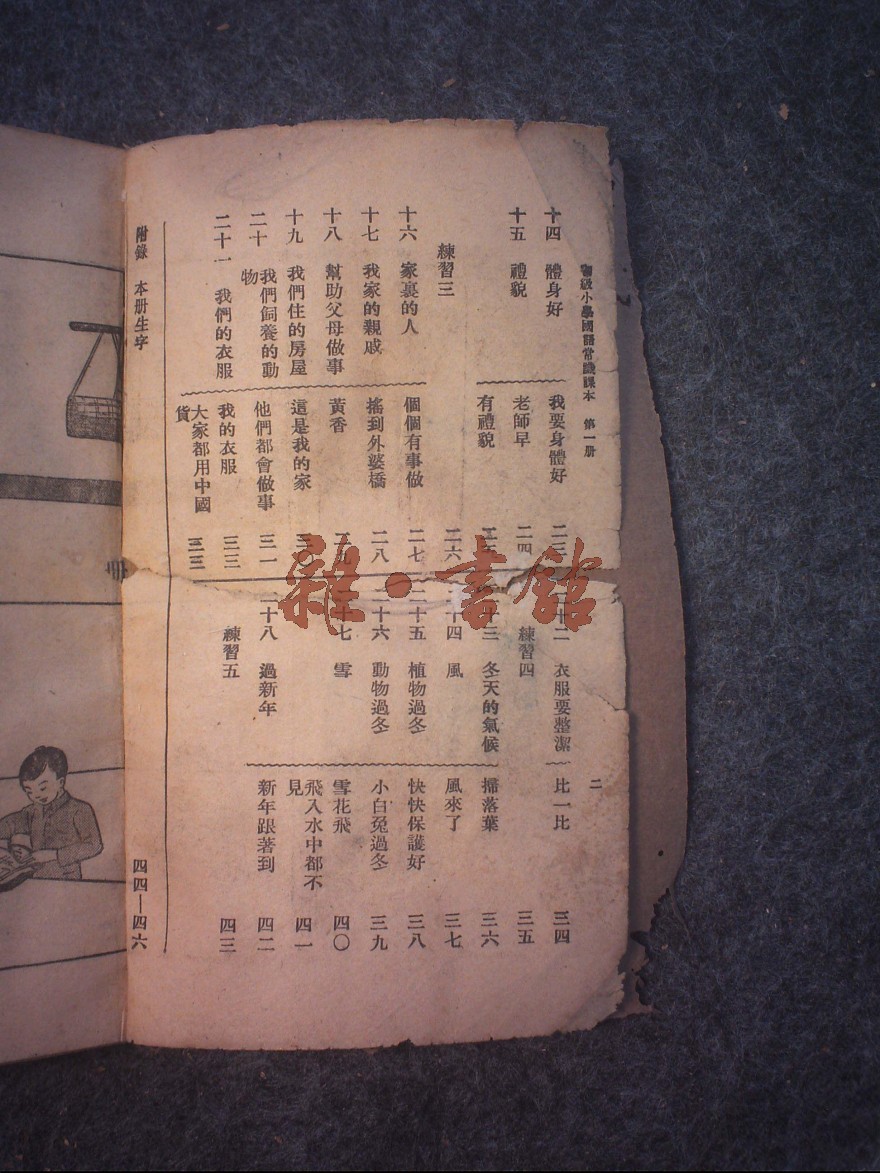 初級小學國語常識課本 第一册 二
十四 體身好 我要身體好 二三
十五 禮貌 老師早 二四
有禮貌 二五
練習三 二六
十六 家裏的人 個個有事做 二七
十七 我家的親戚 搖到外婆橋 二八
十八 幫助父母做事 黃香 二九
十九 我們住的房屋 這是我的家 三〇
二十 我們飼養的動物 他們都會做事 三一
二十一 我們的衣服 我的衣服 三二
大家都用中國貨 三三
二十二 衣服要整潔 比一比 三四
練習四 三五
二十三 冬天的氣候 掃落葉 三六
二十四 風 風來了 三七
二十五 植物過冬 快快保護好 三八
二十六 動物過冬 小白兔過冬 三九
二十七 雪 雪花飛 四〇
飛入水中都不見 四一
二十八 過新年 新年跟著到 四二
練習五 四三
附錄 本册生字 四四—四六
雜·書館